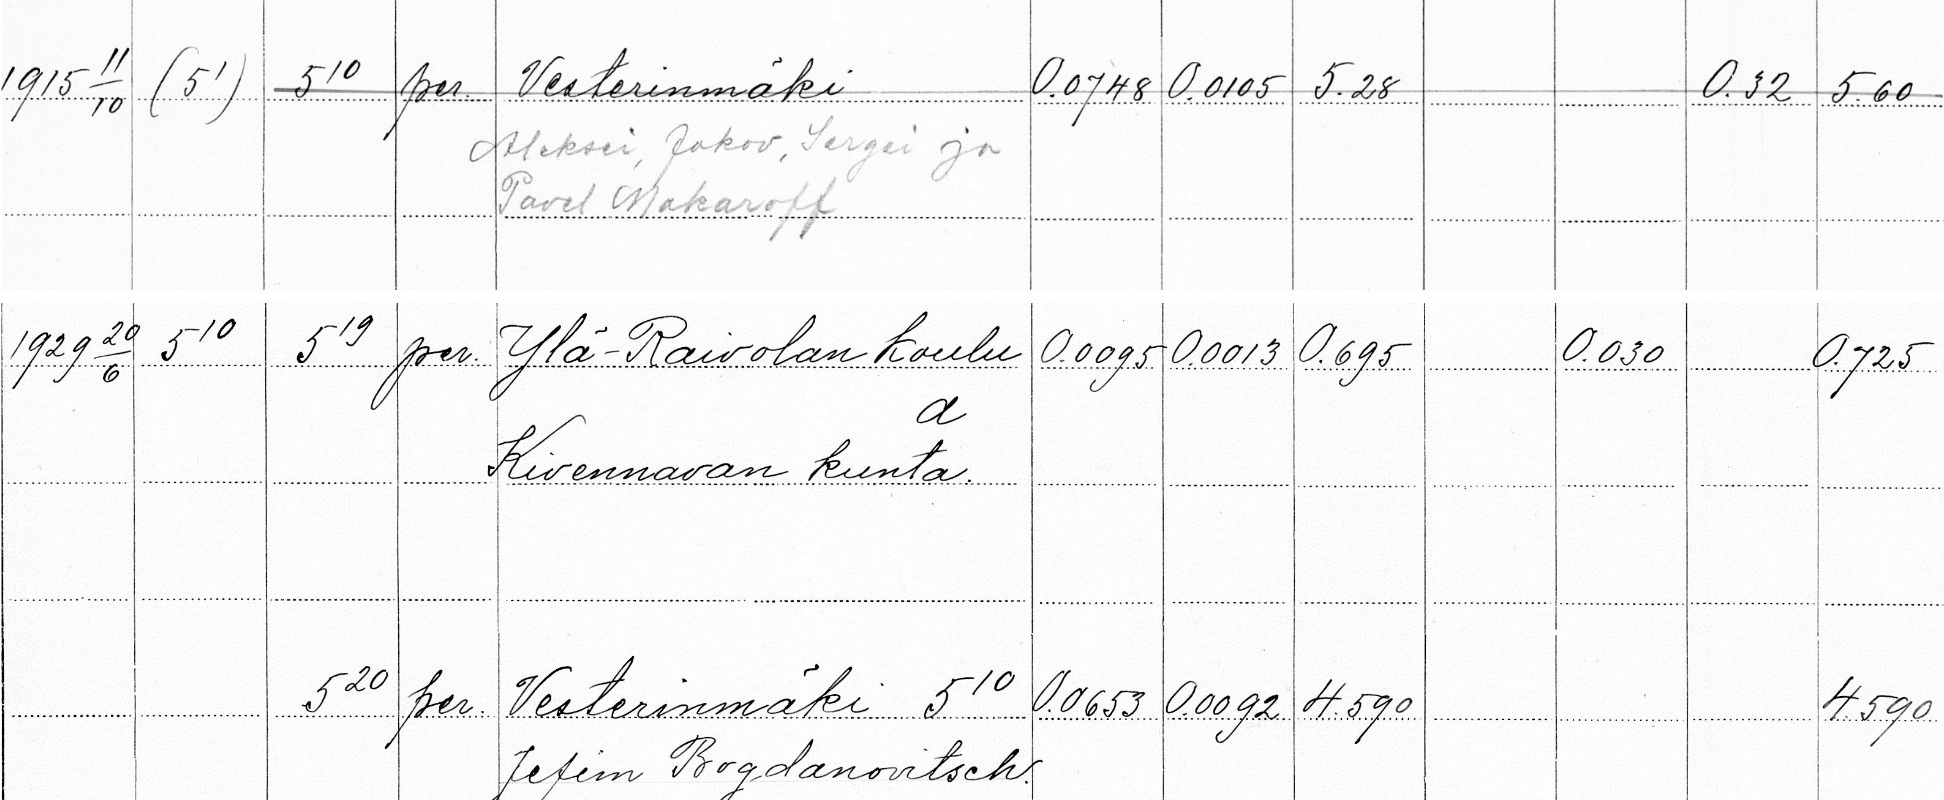 1915 11/10 (5¹) 5¹⁰ per. Vesterinmäki 0.0748 0.0105 5.28 0.32 5.60
Aleksei, Jakov, Sergei ja
Pavel Makaroff
1929 20/6 5¹⁰ 5¹⁹ per. Ylä-Raivolan koulu 0.0095 0.0013 0.695 0.030 0.725
a
Kivennavan kunta.
5²⁰ per. Vesterinmäki 5¹⁰ 0.0653 0.0092 4.590 4.590
Jefim Bogdanovitsch.